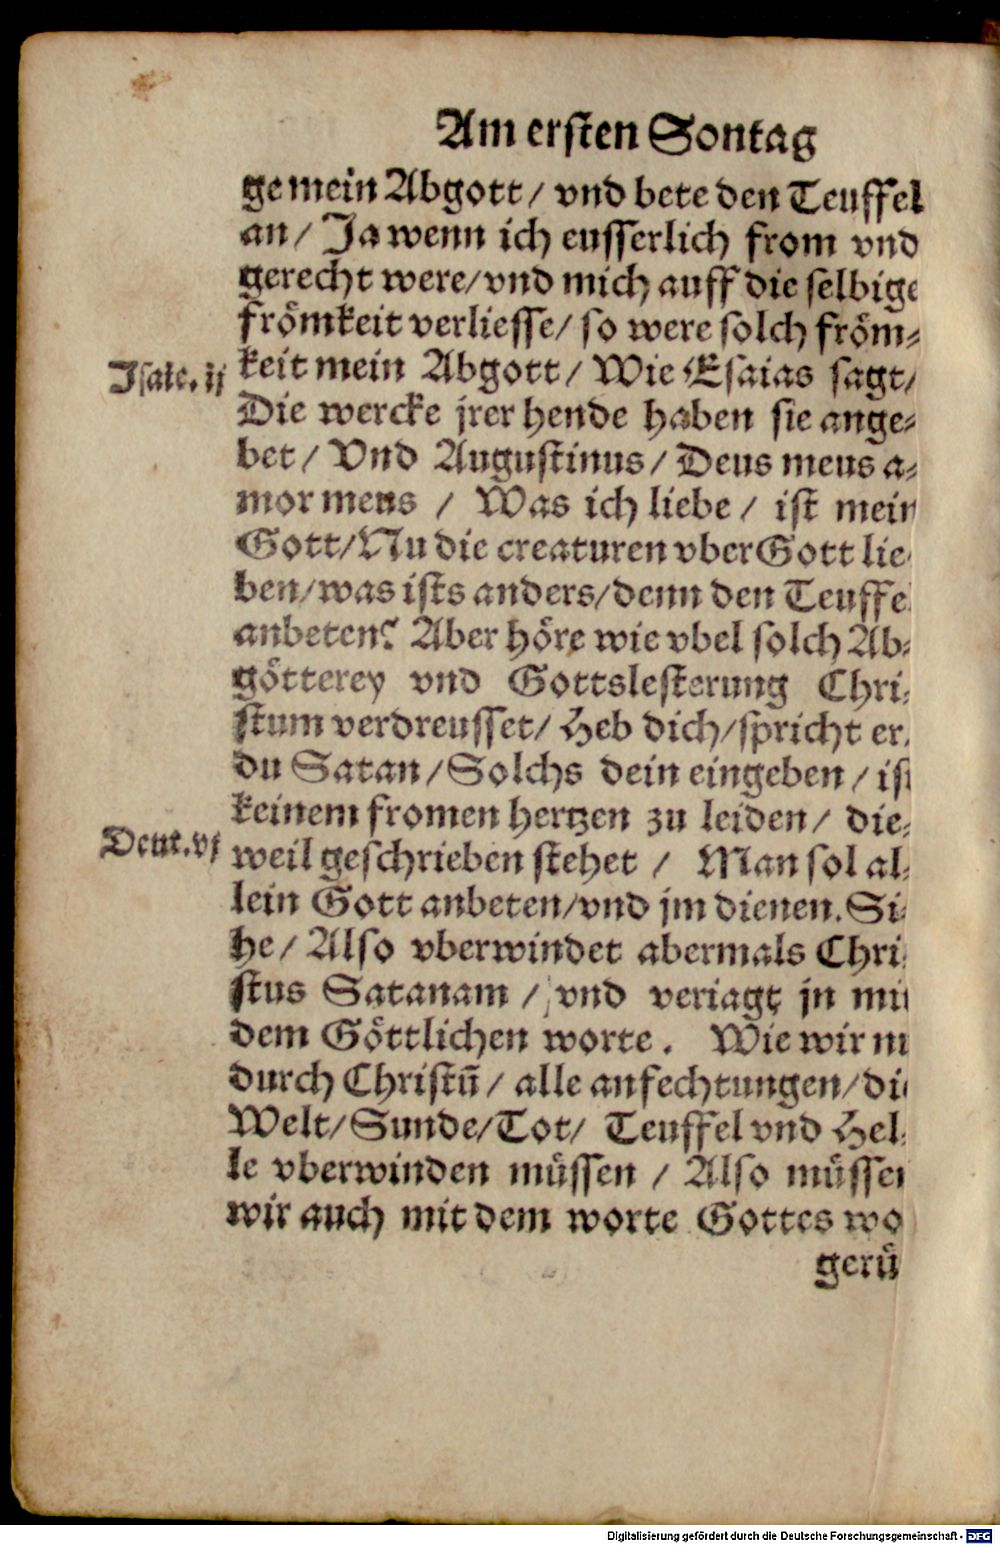 Am ersten Sontag
ge mein Abgott / vnd bete den Teuffel
an / Ja wenn ich eusserlich from vnd
gerecht were / vnd mich auff die selbige
frömkeit verliesse / so were solch fröm⸗
Isaie. ij
keit mein Abgott / Wie Esaias sagt /
Die wercke jrer hende haben sie ange⸗
bet / Vnd Augustinus / Deus meus a⸗
mor meus / Was ich liebe / ist mein
Gott / Nu die creaturen vber Gott lie⸗
ben / was ists anders / denn den Teuffe
anbeten? Aber höre wie vbel solch Ab⸗
götterey vnd Gottslesterung Chri⸗
stum verdreusset / Heb dich / spricht er /
du Satan / Solchs dein eingeben / ist
keinem fromen hertzen zu leiden / die⸗
Deut. vj
weil geschrieben stehet / Man sol al⸗
lein Gott anbeten / vnd jm dienen. Si⸗
he / Also vberwindet abermals Chri⸗
stus Satanam / vnd veriagt jn mit
dem Göttlichen worte. Wie wir
durch Christū / alle anfechtungen / die
Welt / Sunde / Tot / Teuffel vnd Hel⸗
le vberwinden müssen / Also müssen
wir auch mit dem worte Gottes wo
gerü
Digitalisierung gefördert durch die Deutsche Forschungsgemeinschaft - DFG